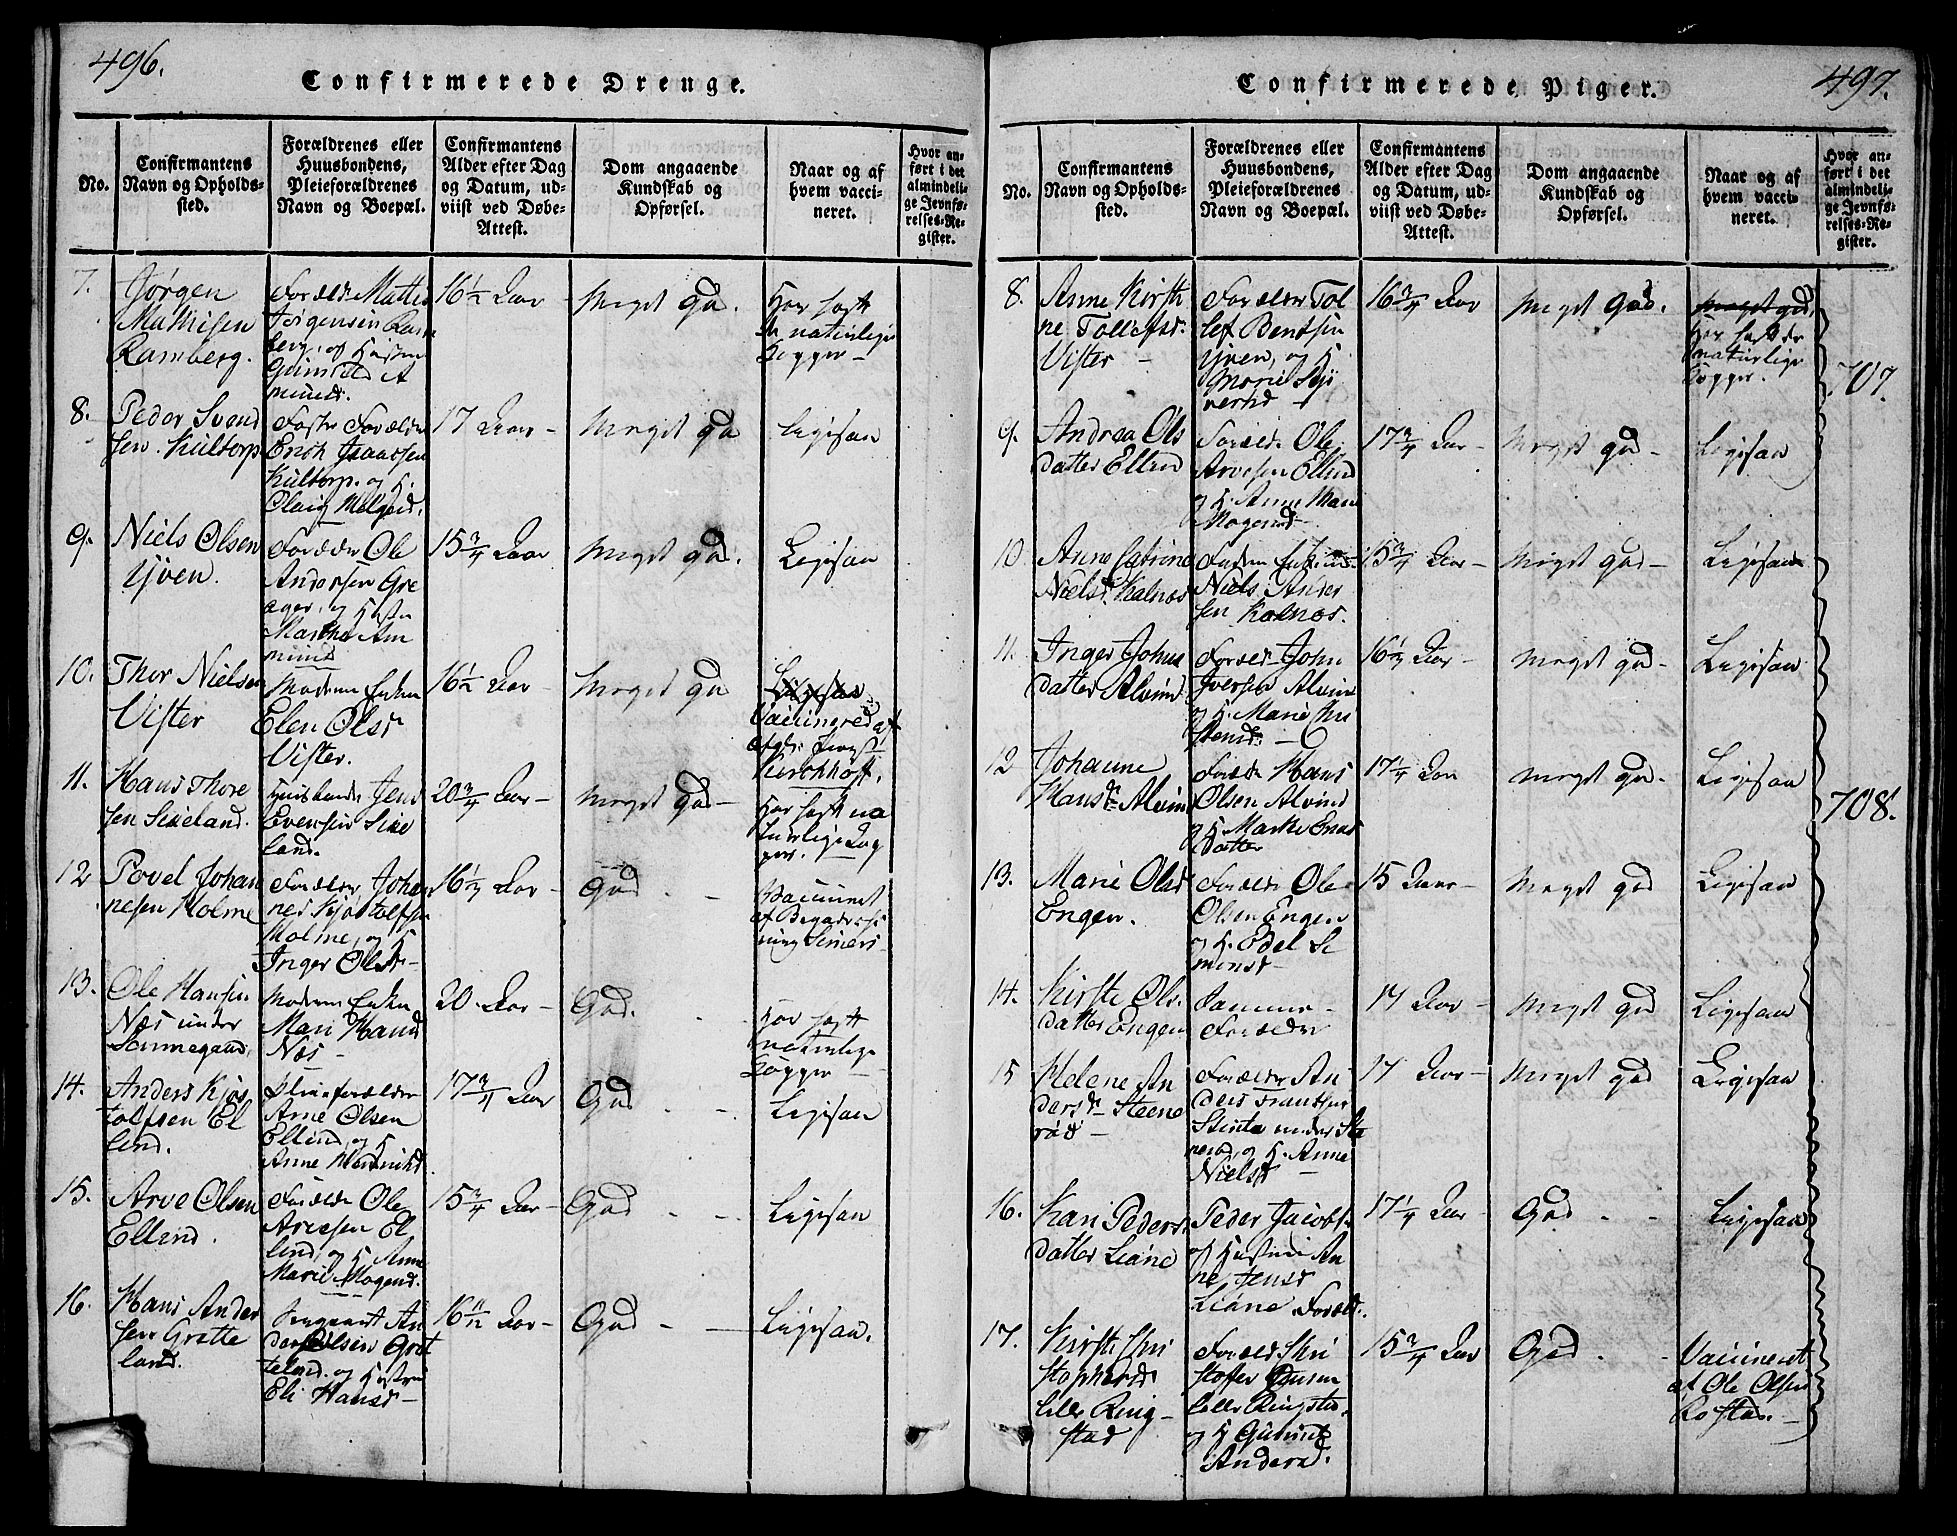 496.
Confirmerede Drenge.
No.
Confirmantens
Navn og Opholds-
sted.
Forældrenes eller
Huusbondens,
Pleieforældrenes
Navn og Boepæl.
Confirmantens
Alder efter Dag
og Datum, ud-
viist ved Døbe-
Attest.
Dom angaaende
Kundskab og
Opførsel.
Naar og af
hvem vacci-
neret.
Hvor an-
ført i det
almindeli-
ge Jevnfø-
relses-Re-
gister.
7.
Jørgen
Mathisen
Ramberg.
Forældre
Jørgensen Ram
berg, og Hustru
16 1/2 Aar
Meget god.
Har havt
de naturlige
Kopper
8.
Peder Svend
sen Kultorp
Foster Forældre
Erich Isaacsen
Kultorp. og H.
17 Aar
Meget god
Ligesaa
9.
Niels Olsen
Yven.
Forældre Ole
Andersen Gre
ager, og Hustru
Martha Am
mund
15 3/4 Aar
Meget god.
Ligesaa
10.
Thor Nielsen
Vister
Moderen Enken
Elen Olsd
Vister.
16 1/2 Aar
Meget god
Ligesaa
Vaccinered af
Kirchhoff.
11.
Hans Thore
sen Sikeland.
Huusbonde Jens
Evensen Sike
land.
20 3/4 Aar
Meget god
Har havt na
turlige Kop
per.
12
Povel Johan
nesen Holme
Forældre Johan
nes Kjøstolfsen
Holme, og H
Inger Olsd
16 1/2 Aar
God
Vaccineret
af
13.
Ole Hansen
Næs under
Moderen Enken
Mari Hansd
Næs
20 Aar
God.
Har havt
naturlige
Kopper
14.
Anders Kjøs
tolfsen El
lind.
Pleieforældre
Arne Olsen
Ellind, og H
Anne
17 3/4 Aar
God
Ligesaa
15.
Arve Olsen
Ellind.
Forældre Ole
Arvesen El
lind, og H Anne
Marie Mogensd.
15 3/4 Aar
God
Ligesaa
16.
Hans Ander
sen Grotte
land.
An
ders Olsen Grot
teland. og Hustru
Eli Hansd
16 11/12 Aar
God
Ligesaa.
497.
Confirmerede Piger.
No.
Confirmantens
Navn og Opholds-
sted.
Forældrenes eller
Huusbondens,
Pleieforældrenes
Navn og Boepæl.
Confirmantens
Alder efter Dag
og Datum, ud-
viist ved Døbe-
Attest.
Dom angaaende
Kundskab og
Opførsel.
Naar og af
hvem vacci-
neret.
Hvor an-
ført i det
almindeli-
ge Jevnfø-
relses-Re-
gister.
8.
Anne Kirsti
ne Tollefsd.
Vister
Forældre Tol
lef Bendtsen
Yven, og H
Marie Syv
vertsd
16 3/4 Aar
Meget god.
Meget god.
Har havt de
naturlige
Kopper.
707.
9.
Andrea Ols
datter Ellind
Forældre Ole
Arvesen Ellind
og H. Anne Marie
Mogensd
17 3/4 Aar
Meget god
Ligesaa
10
Anne Catrine
Nielsd. Kalnæs
Niels Ander
sen Kalnæs.
15 3/4 Aar
Meget god
Ligesaa
11.
Inger Johns
datter Alvim
Forældre John
Iversen Alvim
og H. Marie Chri
stensd.
16 1/2 Aar
Meget god
Ligesaa
12
Johanne
Hansdr Alvim
Forældre Hans
Olsen Alvim
datter
17 1/4 Aar
Meget god
Ligesaa
708.
13.
Marie Olsd
Engen.
Forældre Ole
Olsen Engen
og H. Edel Si
monsd
15 Aar
Meget god
Ligesaa
14.
Kirsti Ols
datter Engen
Samme
Forældre
17 Aar
Meget god
Ligesaa
15
Helene An
dersdr Steene
rød
Forældre An
ders Frantsen
under Ste
nerød, og H. Anne
Nielsd
17 Aar
Meget god
Ligesaa
16.
Kari Peders
datter Liane
Peder Jacobs.
og Hustrue An
ne Jensd
Liane Foræld.
17 1/4 Aar
God
Ligesaa
17.
Kirsti Chri
stophersd
Lille Ring
stad
Foræld Chri
stofer
Lille Ringsta.
og H Gunnild
Andersd.
15 3/4 Aar
God
Vaccineret
af Ole Olsen
Rostad.